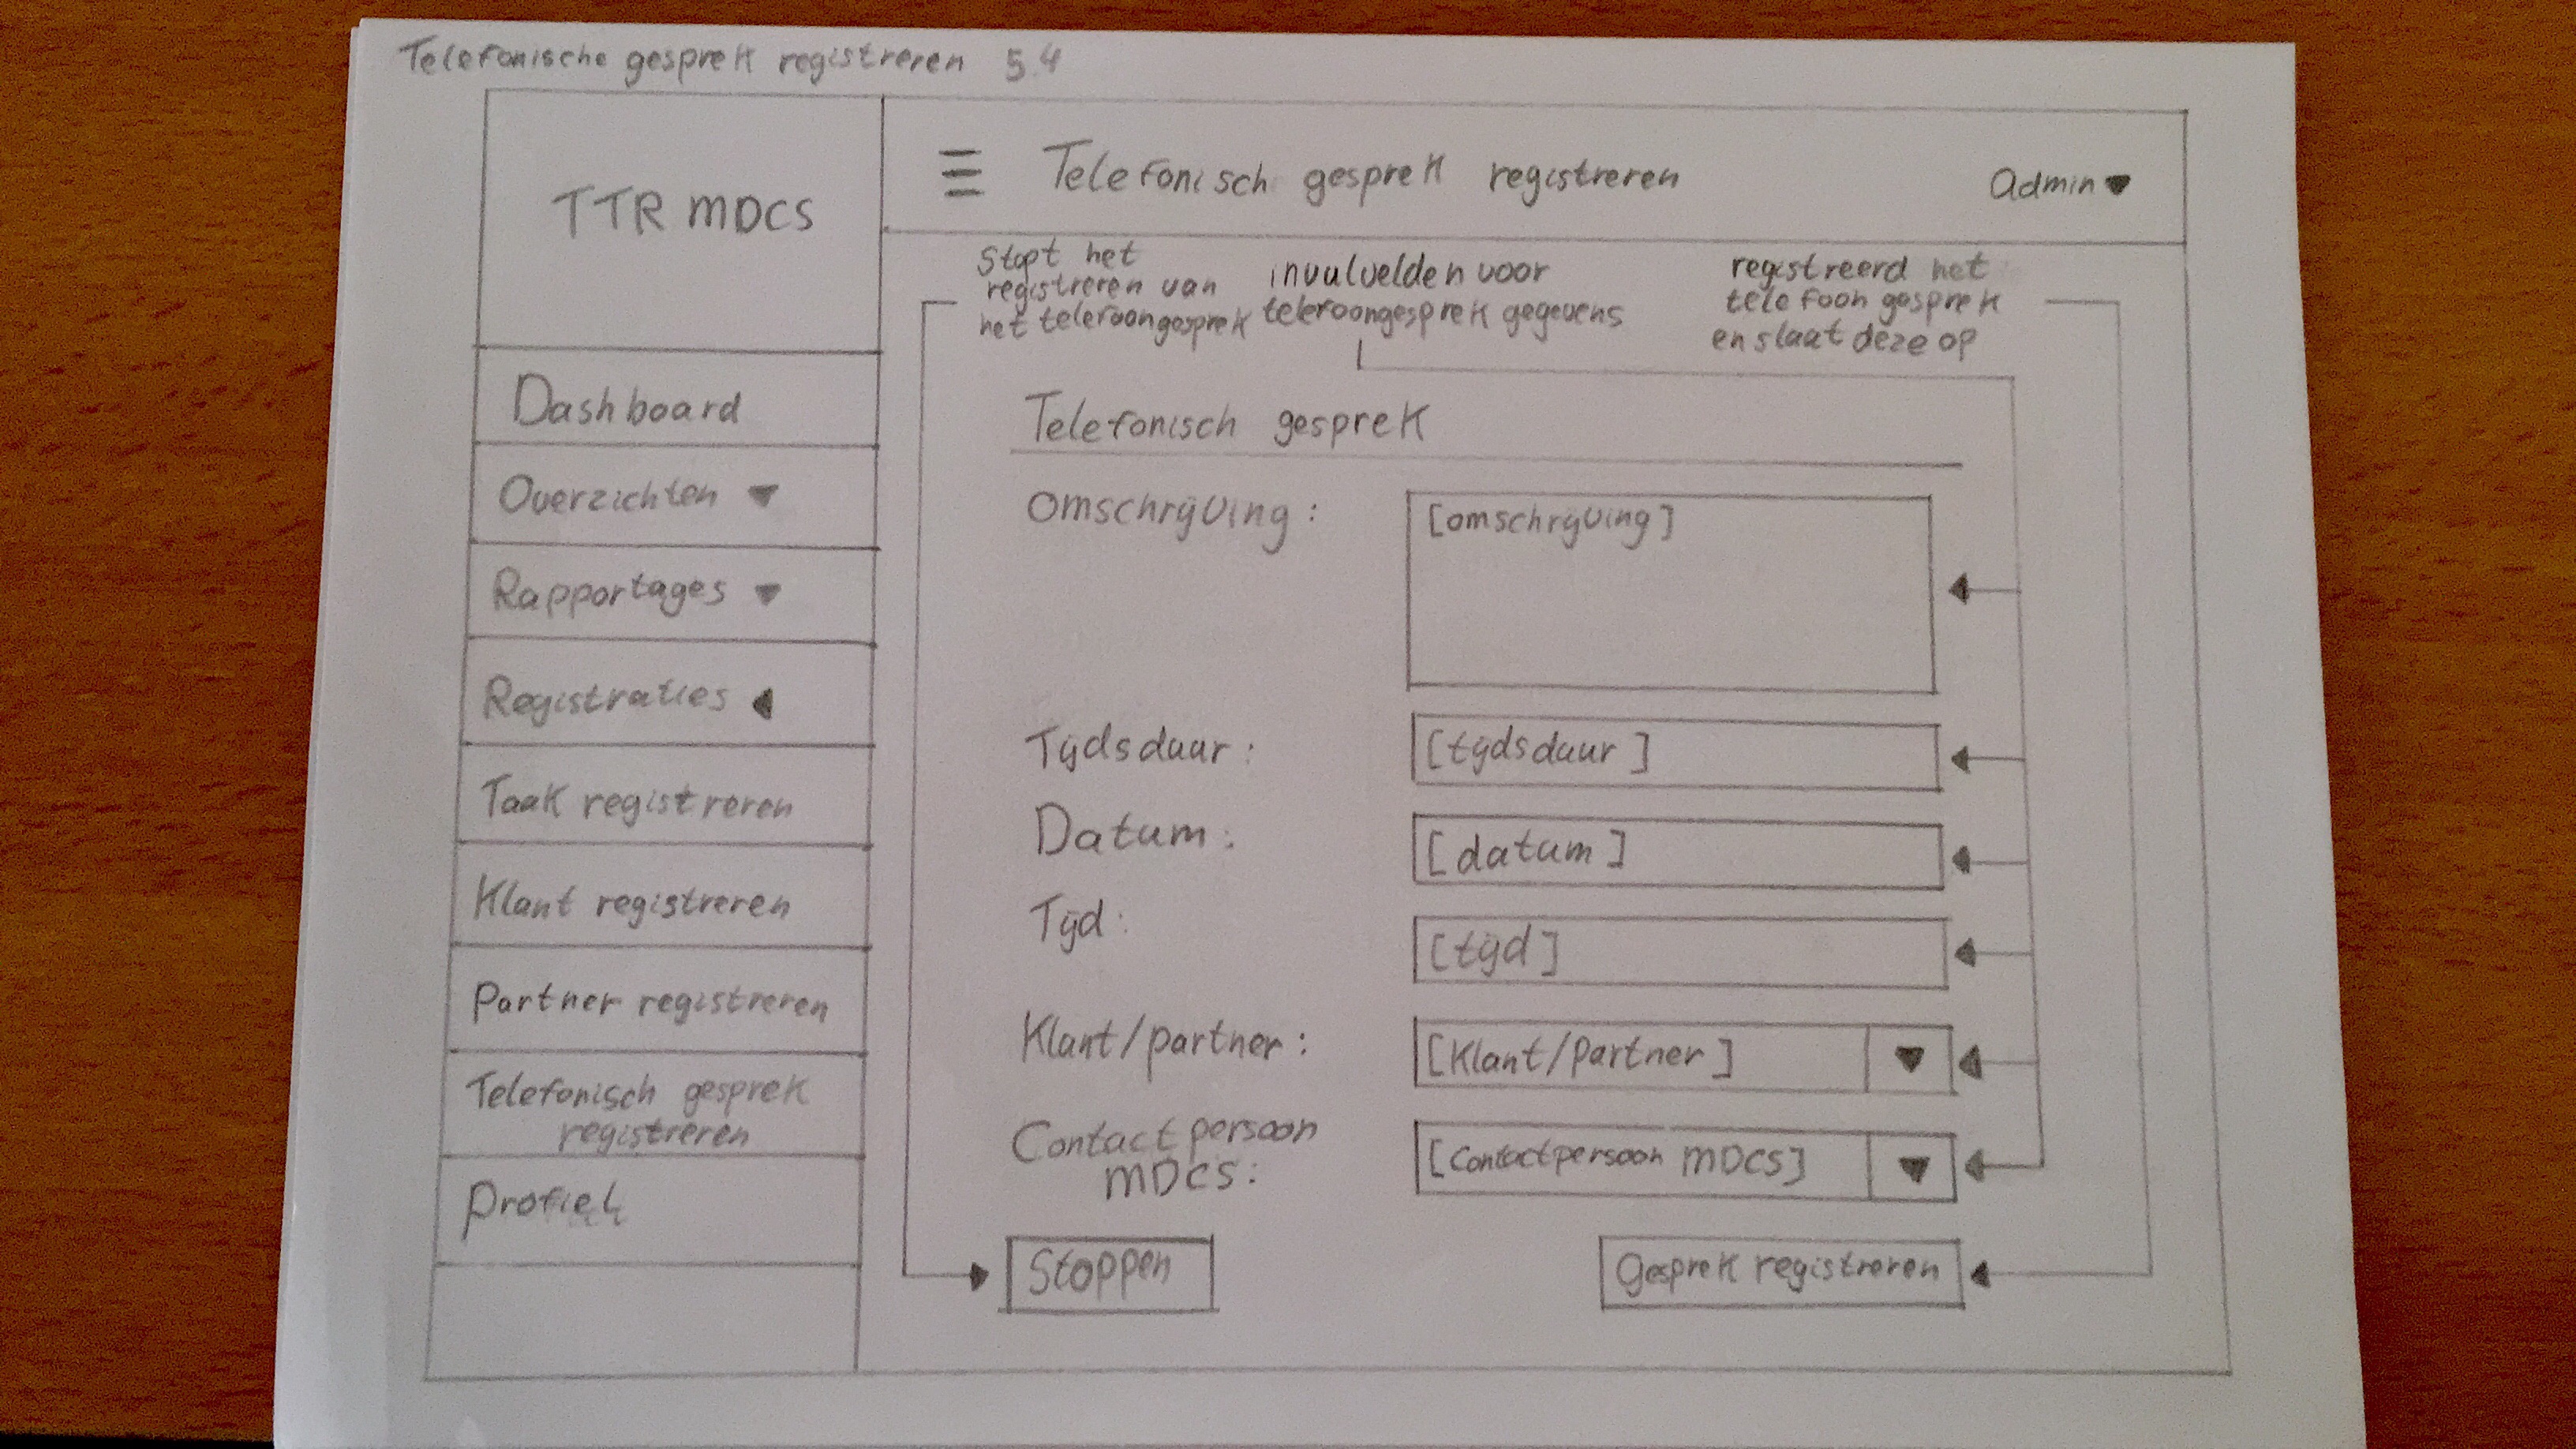 Telefonische gesprek registreren 5.4
TTR MDCS
Telefonisch gesprek registreren
Admin
Dashboard
Overzichten
Rapportages
Registraties
Taak registreren
Klant registreren
Partner registreren
Telefonisch gesprek
registreren
Profiel
Stopt het
registreren van
het telefoongesprek
invulvelden voor
telefoongesprek gegevens
registreerd het
telefoon gesprek
en slaat deze op
Telefonisch gesprek
Omschrijving: [omschrijving]
Tijdsduur: [tijdsduur]
Datum: [datum]
Tijd: [tijd]
Klant/partner: [Klant/partner]
Contactpersoon
MDCS: [Contactpersoon MDCS]
Stoppen
Gesprek registreren